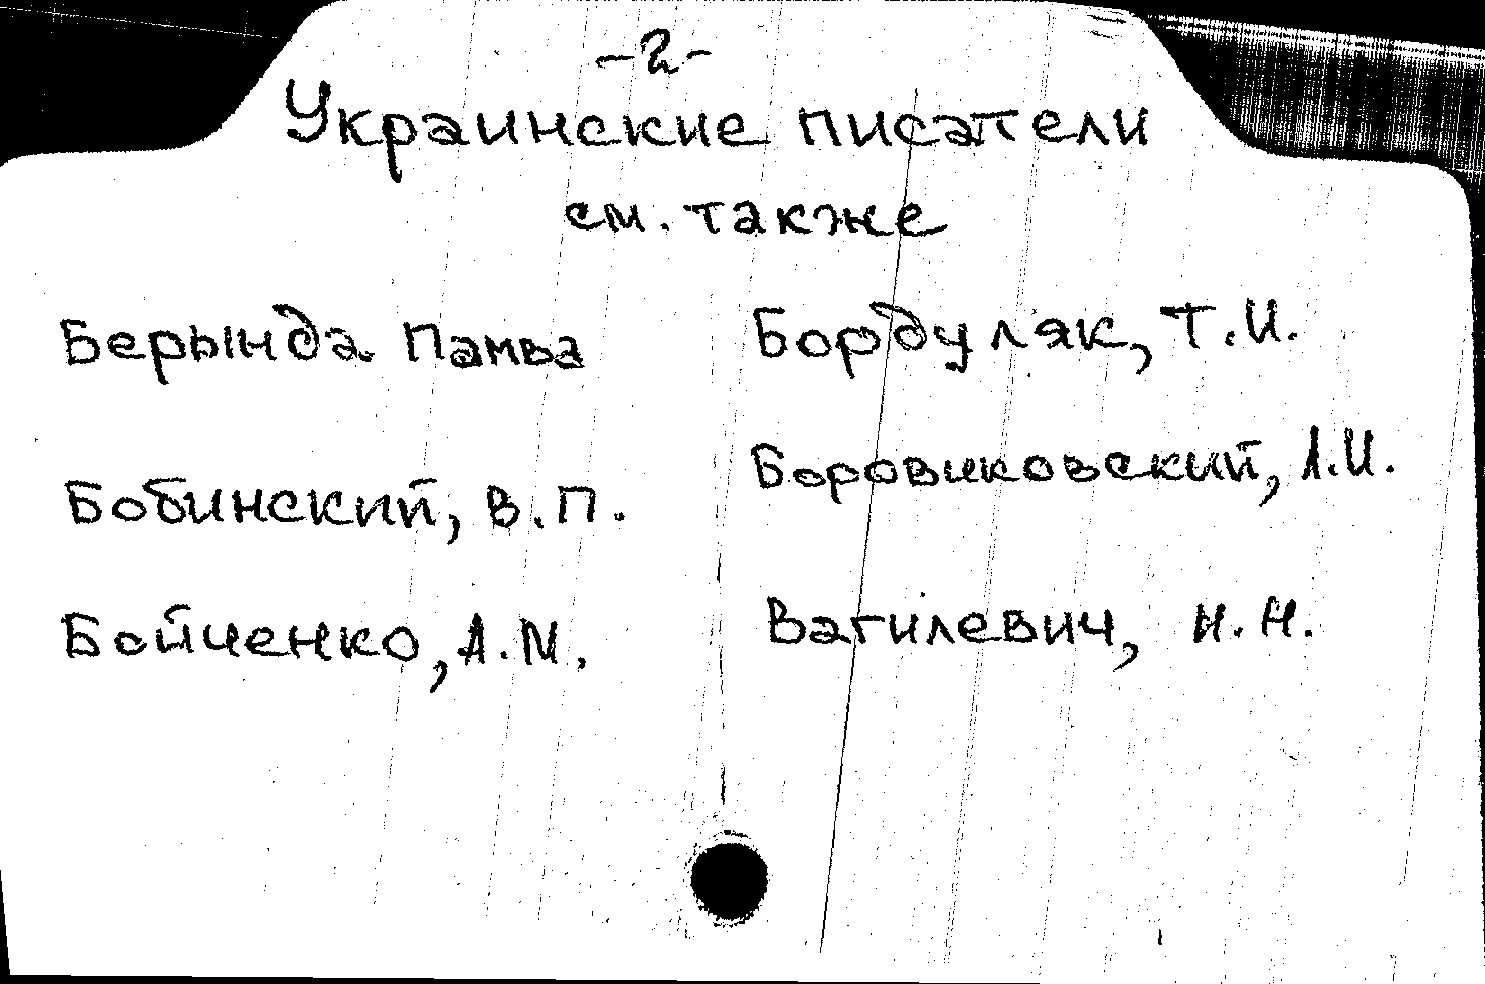 -2-
Украинские писатели
см. также
Берында Памва
Бобинский, В.П.
Бойченко, А.М.
Бордуляк, Т.И.
Боровиковский, Л.И.
Вагилевич, И.Н.